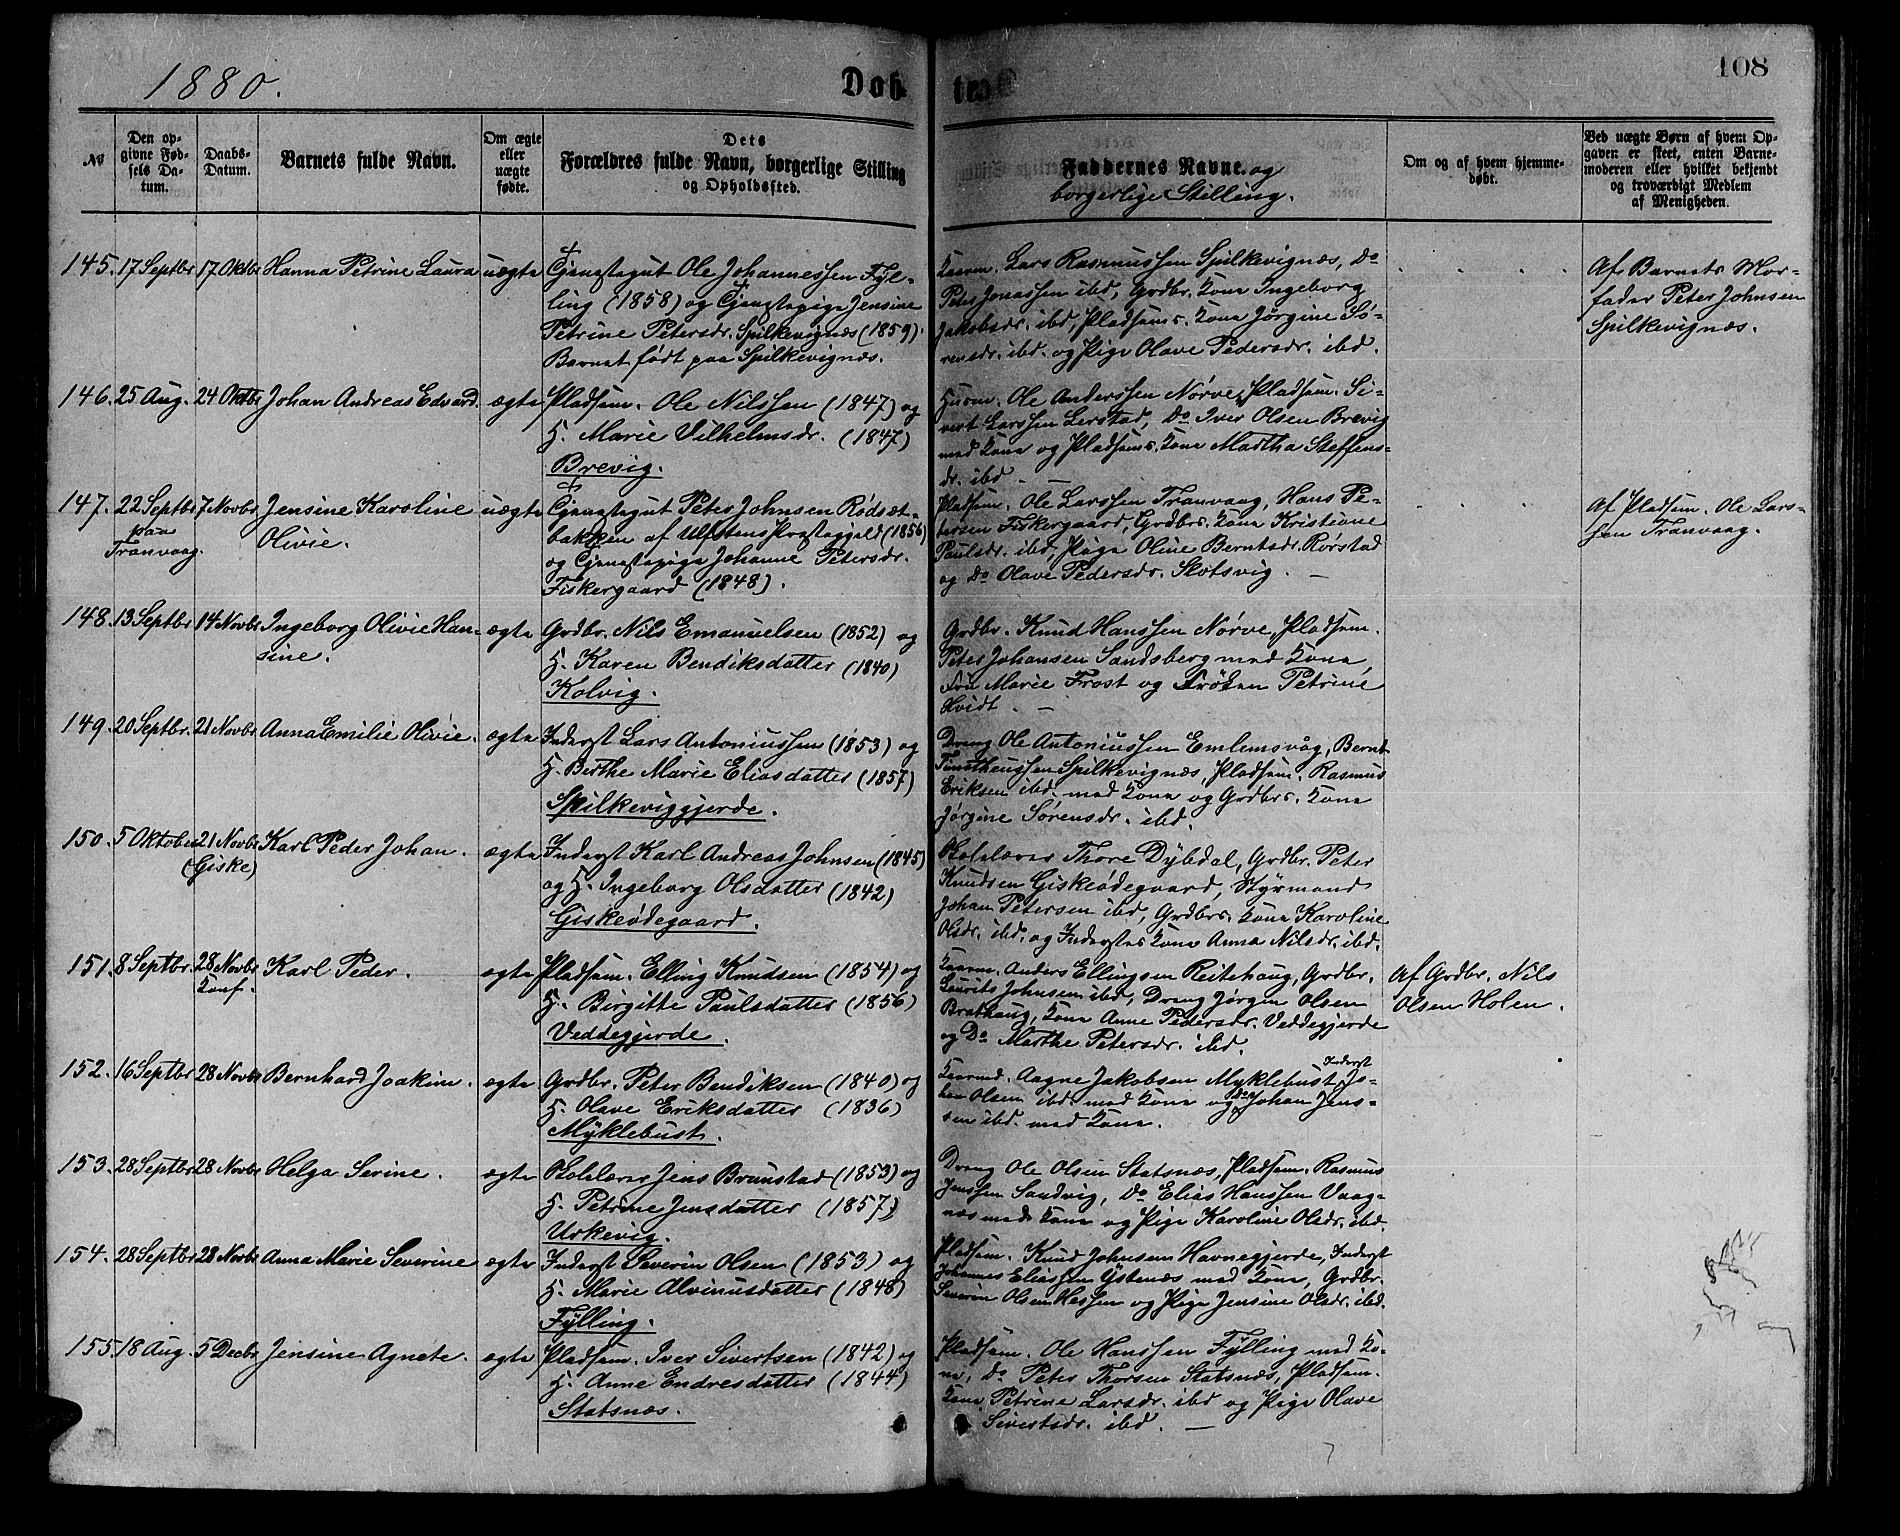 1880.
Døb
te.
108
No
Den op-
givne Fød-
sels Da-
tum.
Daabs-
Datum.
Barnets fulde Navn.
Om ægte
eller
uægte
fødte.
Dets
Forældres fulde Navn, borgerlige Stilling
og Opholdssted.
Faddernes Navne og
borgerlige Stilling.
Om og af hvem hjemme-
døbt.
Ved uægte Børn af hvem Op-
gaven er skeet, enten Barne-
moderen eller hvilket bekjendt
og troværdigt Medlem
af Menigheden.
145. 17 Septbr. 17 Oktbr Hanna Petrine Laura uægte
Tjenestegut Ole Johannessen Fyl-
ling (1858) og Tjenestepige Jensine
Petrine Petersdr. Spilkevignæs (1859).
Barnet født paa Spilkevignæs.
Kaarm. Lars Rasmussen Spilkevignæs, Do
Peter Jonassen ibd, Grdbr. Kone Ingeborg
Jakobsdr. ibd, Pladsms. Kone Jørgine Sø-
rensdr. ibd. og Pige Olave Pedersdr. ibd.
Af Barnets Mor-
fader Peter Johnsen
Spilkevignæs.
146. 25 Aug. 24 Oktbr Johan Andreas Edvard. ægte
Pladsm. Ole Nilssen (1847) og
H. Marie Vilhelmsdr. (1847)
Brevig.
Husm. Ole Anderssen Nørve, Pladsm. Si-
vert Larssen Lerstad, Do Iver Olsen Brevig
med Kone og Pladsms. Kone Martha Steffens-
dr. ibd —
147. 22 Septbr 7 Novbr. Jensine Karoline uægte
paa
Tranvaag.
Olivie.
Tjenestegut Peter Johnsen Rødsæt-
bakken af Ulfstens Præstegjeld (1856)
og Tjenestepige Johanne Petersdr.
Fiskergaard (1848).
Pladsm. Ole Larssen Tranvaag, Hans Pe-
tersen Fiskergaard, Grdbrs. Kone Kristiane
Paulsdr. ibd, Pige Oline Berntsdr. Rørstad
og Do Olave Pedersdr. Skotsvig. —
Af Pladsm. Ole Lars-
sen Tranvaag.
148. 13 Septbr. 14 Novbr Ingeborg Olivie Han- ægte
sine.
Grdbr. Nils Emanuelsen (1852) og
H. Karen Bendiksdatter (1840)
Kolvig.
Grdbr. Knud Hanssen Nørve, Pladsm.
Peter Johansen Sandsberg med Kone,
Fru Marie Frost og Frøken Petrine
Hvidt. —
149. 20 Septbr. 21 Novbr. Anna Emilie Olivie. ægte
Inderst Lars Antoniussen (1853) og
H. Berthe Marie Eliasdatter (1857)
Spilkeviggjerde.
Dreng Ole Antoniussen Emlemsvåg, Bernt
Timotheussen Spilkevignæs, Pladsm. Rasmus
Eriksen ibd. med Kone og Grdbrs. Kone
Jørgine Sørensdr. ibd.
150. 5 Oktober 21 Novbr Karl Peder Johan. ægte
(Giske)
Inderst Karl Andreas Johnsen (1845)
og H. Ingeborg Olsdatter (1842)
Giskeødegaard.
Skolelærer Thore Dybdal, Grdbr. Peter
Knudsen Giskeødegaard, Styrmand
Johan Petersen ibd, Grdbrs. Kone Karoline
Olsdr. ibd. og Inderstes Kone Anna Nilsdr. ibd.
151. 8 Septbr. 28 Novbr Karl Peder. ægte
Konf.
Pladsm. Elling Knudsen (1854) og
H. Birgitte Paulsdatter (1856)
Veddegjerde.
Kaarm. Anders Ellingsen Reitehaug, Grdbr.
Laurits Johnsen ibd, Dreng Jørgen Olsen
Brathaug, Kone Anne Pedersdr. Veddegjerde
og Do Marthe Petersdr. ibd.
Af Grdbr. Nils
Olsen Holen.
152. 16 Septbr 28 Novbr Bernhard Joakim. ægte
Grdbr. Peter Bendiksen (1840) og
H. Olave Eriksdatter (1836)
Myklebust.
Inderst
Kaarmd. Aagne Jakobsen Myklebust, Jo-
han Olsen ibd. med Kone og Do Johan Jens-
sen ibd. med Kone.
153. 28 Septbr 28 Novbr Helga Serine. ægte
Skolelærer Jens Brunstad (1853) og
H. Petrine Jensdatter (1857)
Urkevig.
Dreng Ole Olsen Statsnæs, Pladsm. Rasmus
Jenssen Sandvig, Do Elias Hanssen Vaag-
næs med Kone og Pige Karoline Olsdr. ibd.
154. 28 Septbr 28 Novbr Anna Marie Severine ægte
Inderst Severin Olsen (1853) og
H. Marie Alvinusdatter (1848)
Fylling.
Pladsm. Knud Johnsen Havnegjerde, Inderst
Johannes Eliassen Ystenæs med Kone, Grdbr.
Severin Olsen Hessen og Pige Jensine Olsdr. ibd.
155. 18 Aug. 5 Decbr Jensine Agnete. ægte
Pladsm. Iver Sivertsen (1842) og
H. Anne Endresdatter (1844)
Statsnæs.
Pladsm. Ole Hanssen Fylling med Ko-
ne, Do Peter Thorsen Statsnæs, Pladsm.
Kone Petrine Larsdr. ibd og Pige Olave
Sivertsdr. ibd. —